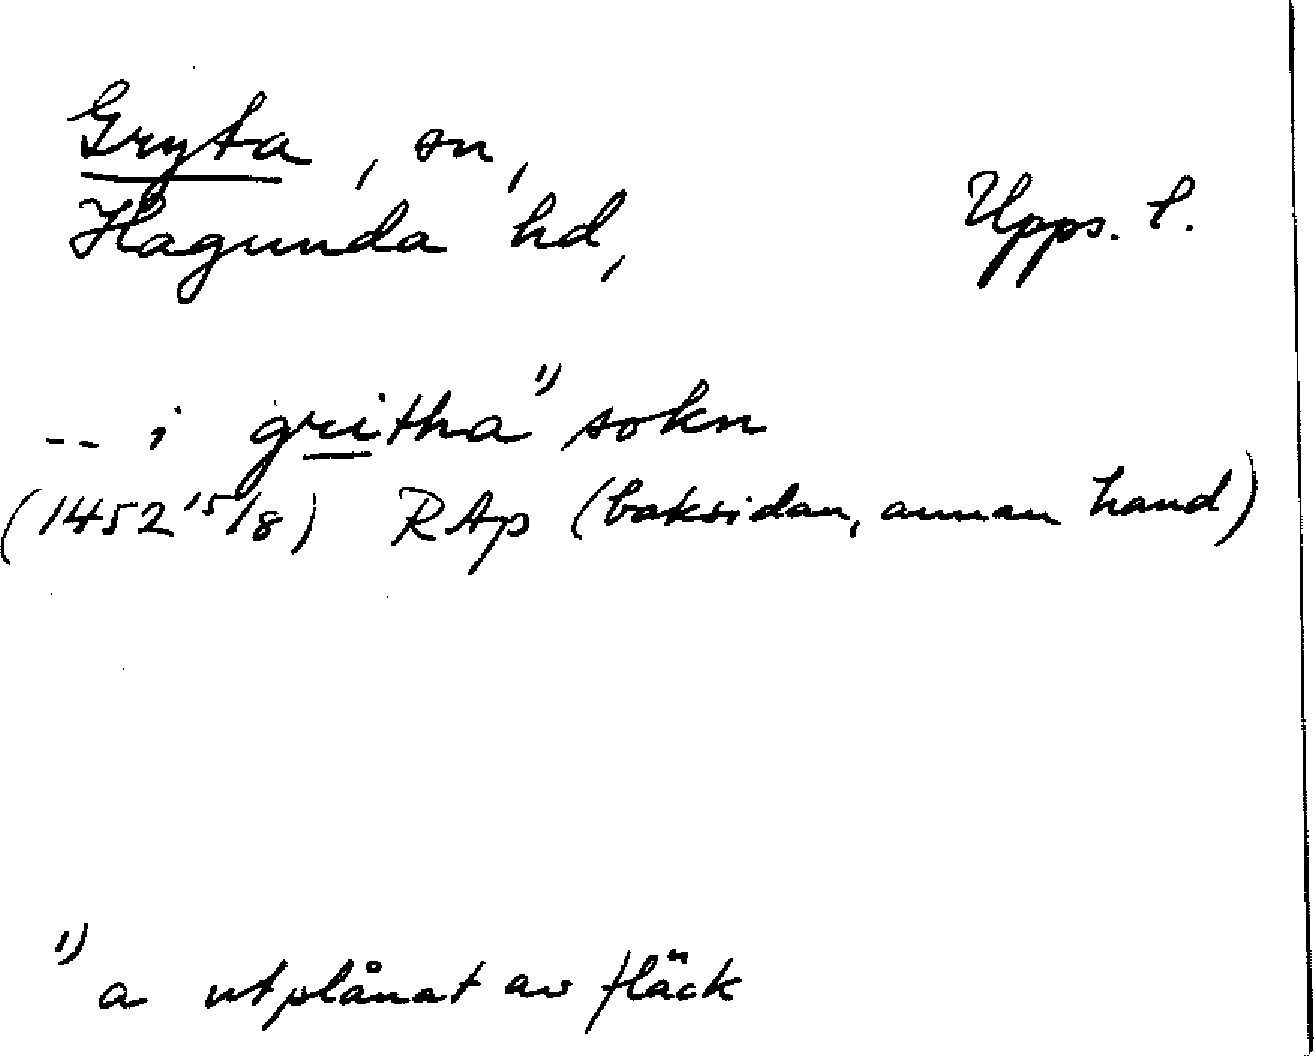 Gryta, sn,
Hagunda hd, Upps. l.
-- i gritha ¹⁾ sokn
(1452 15/8) RAp (baksidan, annan hand)
¹⁾ a utplånat av fläck